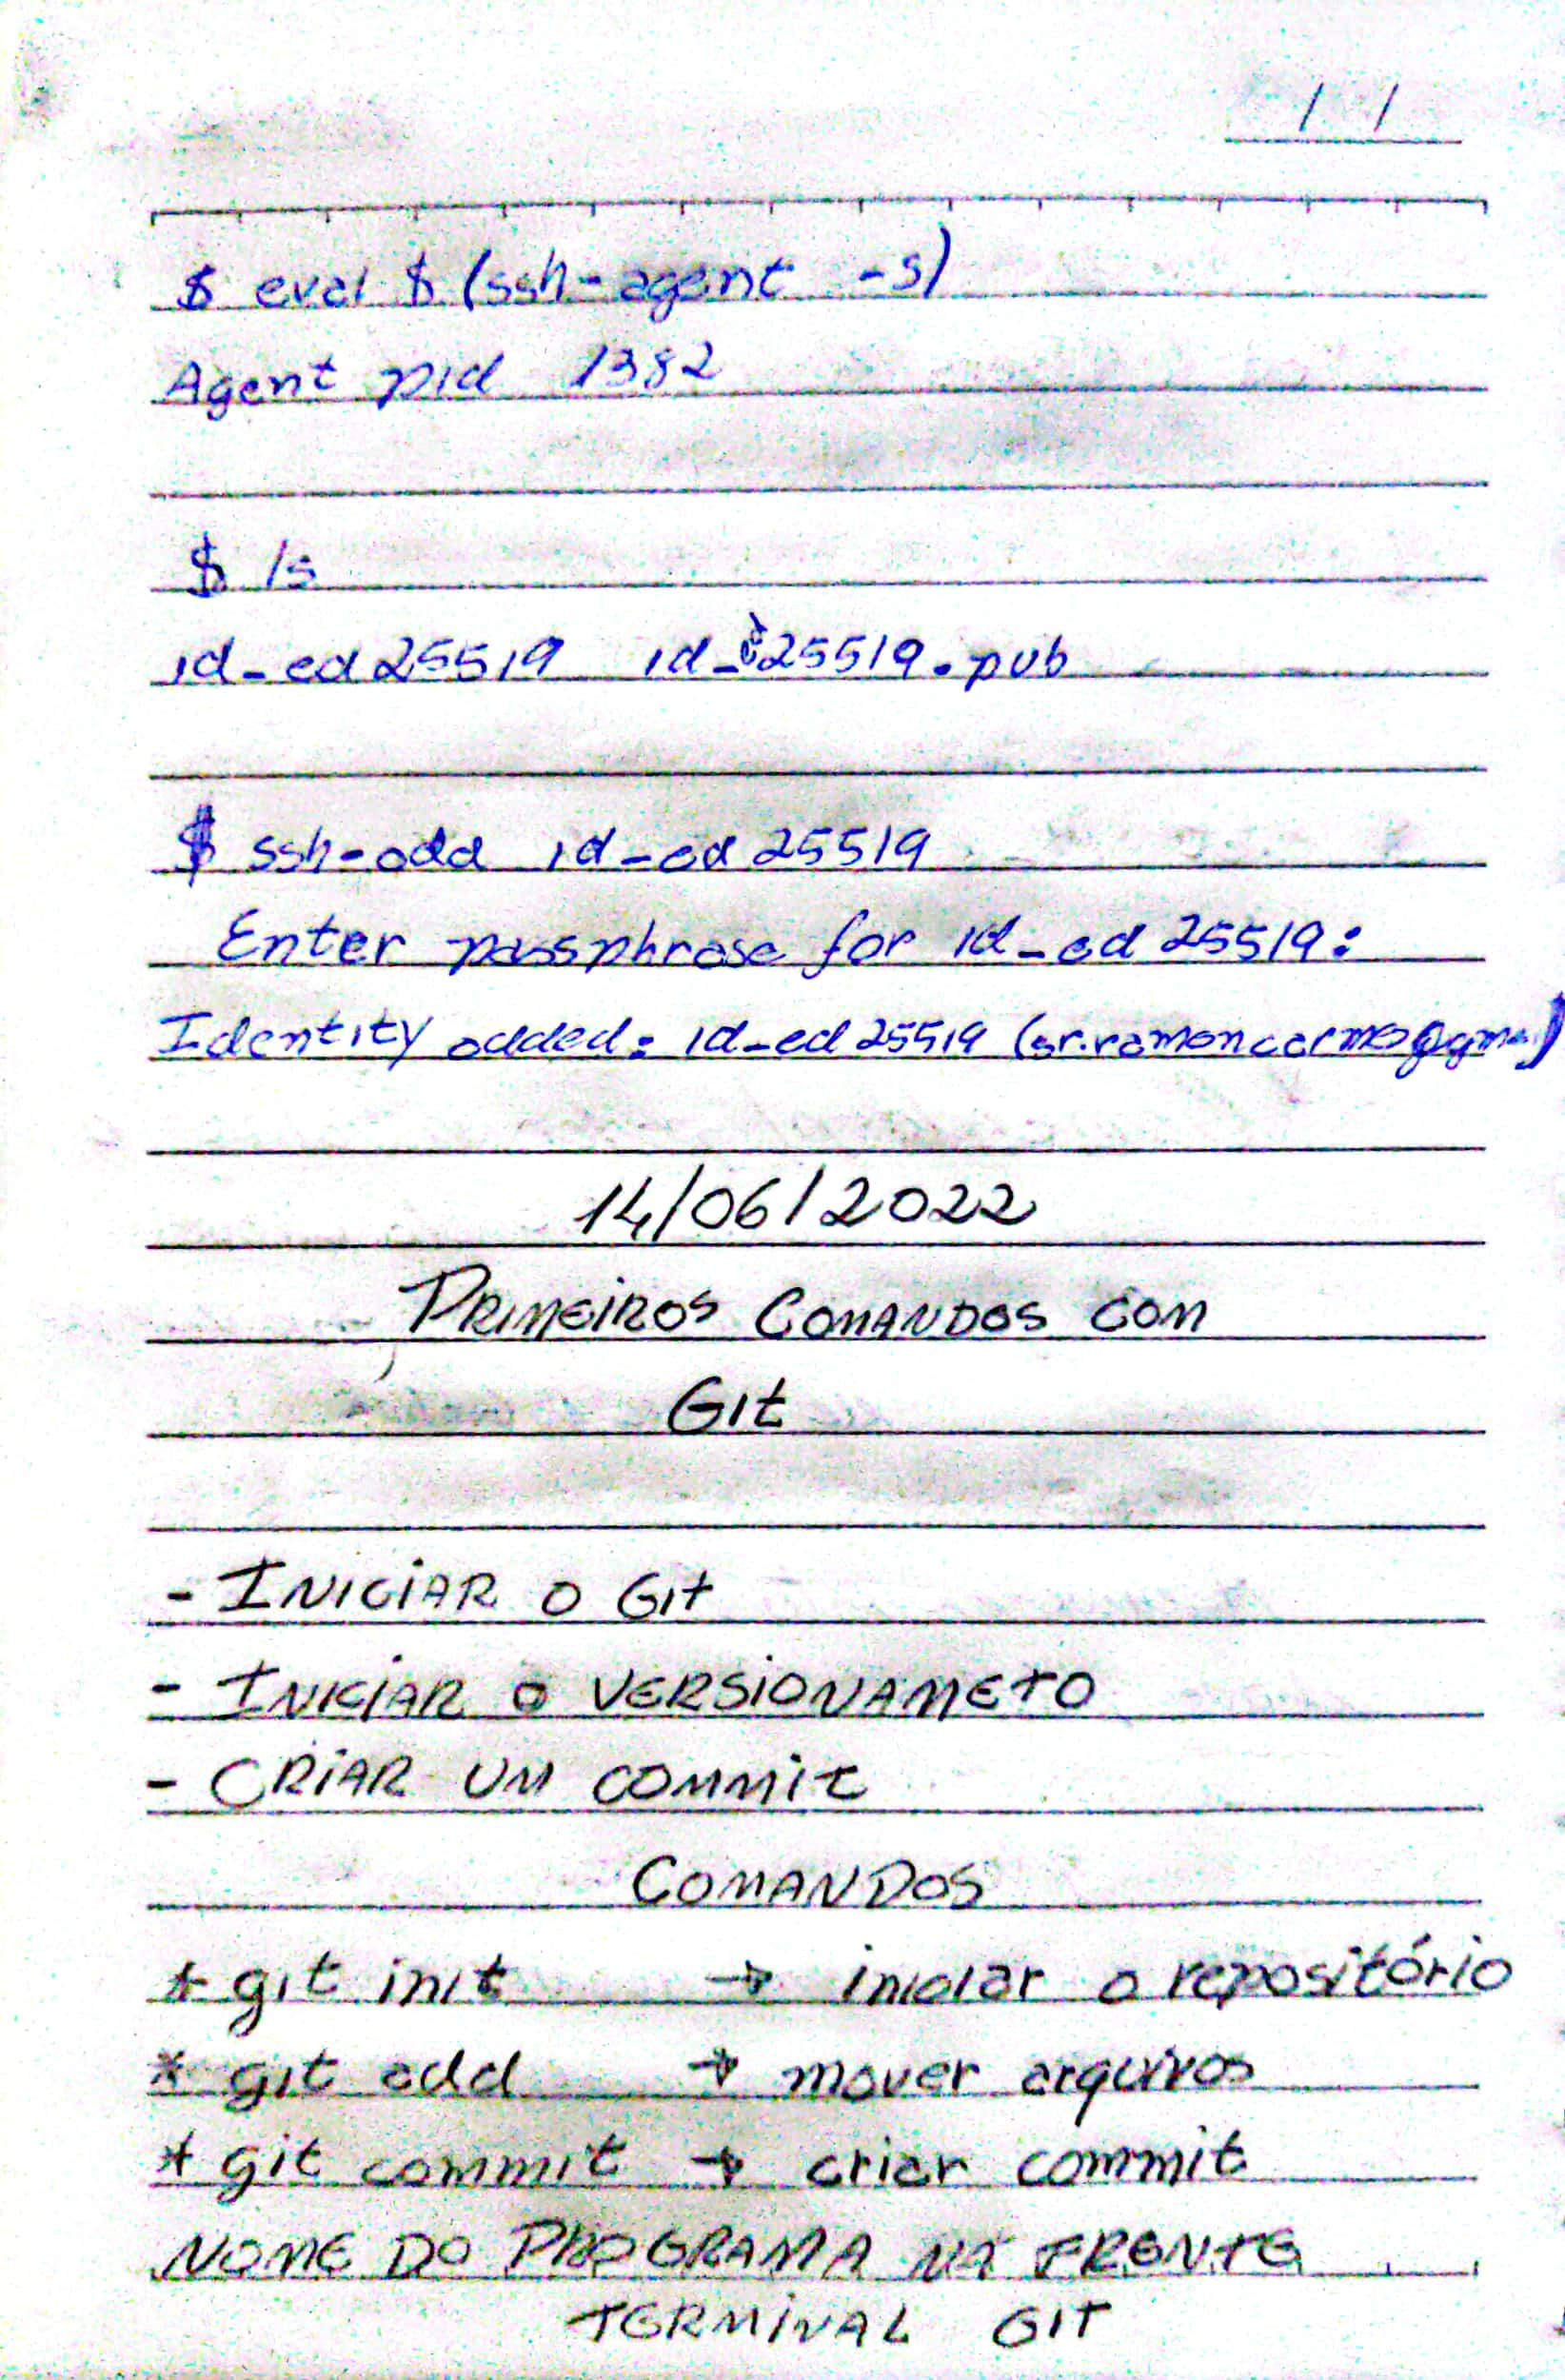 / /
$ eval $(ssh-agent -s)
Agent pid 1382
$ ls
id_ed25519 id_25519.pub
$ ssh-add id_ed25519
Enter passphrase for id_ed25519:
Identity added: id_ed25519 (sr.ramoncarmo@gma)
14/06/2022
PRIMEIROS COMANDOS COM
GIt
- INICIAR O GIt
- INICIAR O VERSIONAMETO
- CRIAR UM COMMIt
COMANDOS
* git init → iniciar o repositório
* git add → mover arquivos
* git commit → criar commit
NOME DO PROGRAMA NA FRENTE
TERMINAL GIT